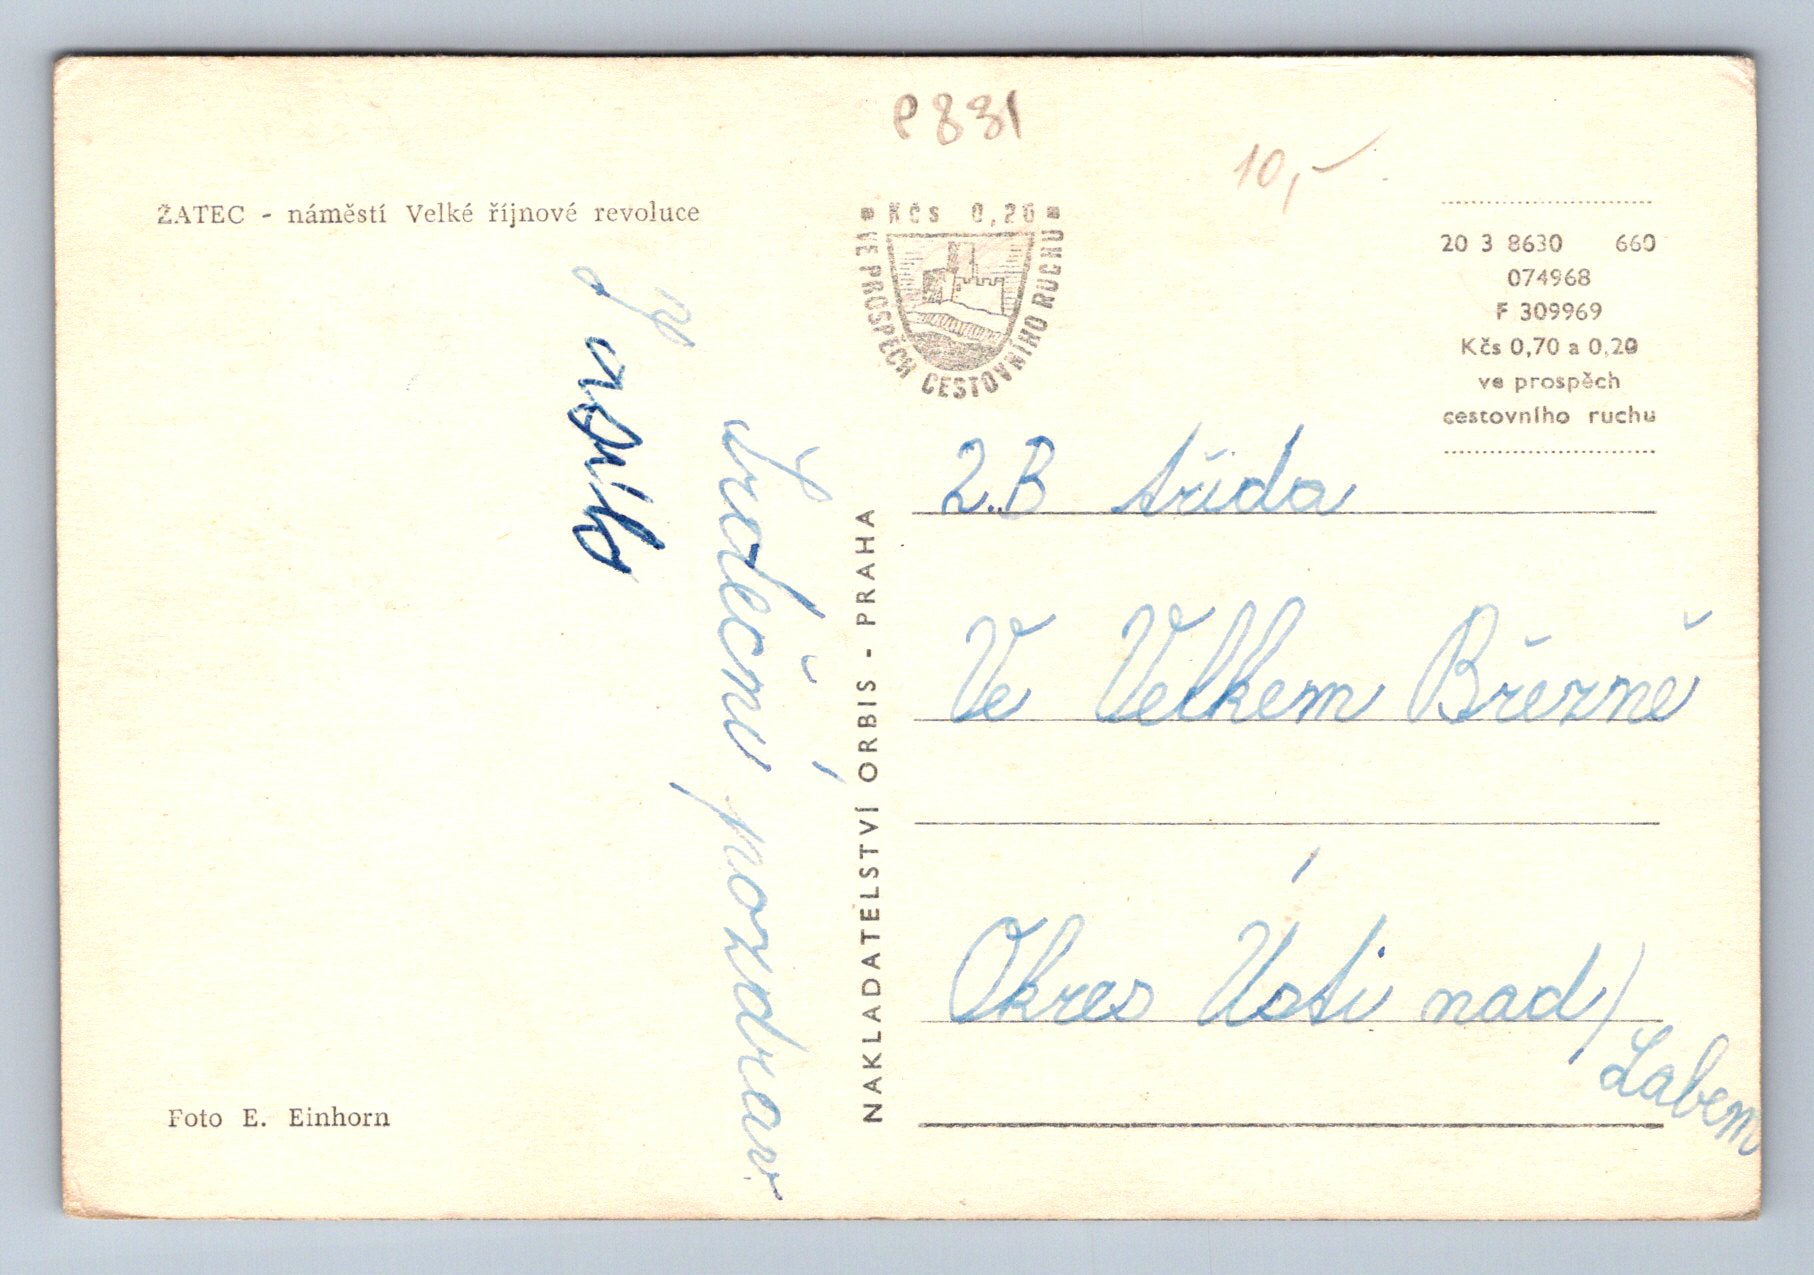 e 881
10,-
ŽATEC - náměstí Velké říjnové revoluce
Kčs 0,20
VE PROSPĚCH CESTOVNÍHO RUCHU
20 3 8630 660
074968
F 309969
Kčs 0,70 a 0,20
ve prospěch
cestovního ruchu
Srdečný pozdrav
NAKLADATELSTVÍ ORBIS - PRAHA
2.B třida
Ve Velkem Březně
Okres Ústi nad/
Labem
Foto E. Einhorn